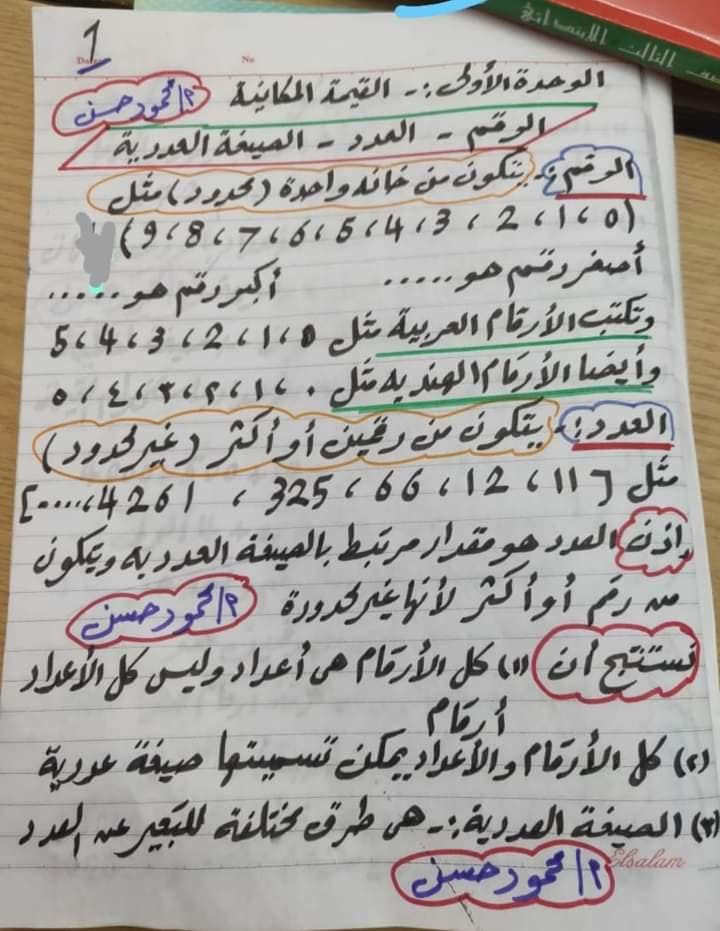 1
Date
No
الصف الثالث الابتدائي
الوحدة الأولى:- القيمة المكانية
م/ محمود حسن
الرقم - العدد - الصيغة العددية
الرقم:- يتكون من خانه واحدة (محدود) مثل
(0، 1، 2، 3، 4، 5، 6، 7، 8، 9)
أصغر رقم هو ..... أكبر رقم هو .....
وتكتب الأرقام العربية مثل 0، 1، 2، 3، 4، 5
وأيضا الأرقام الهنديه مثل ٠، ١، ٢، ٣، ٤، ٥
العدد:- يتكون من رقمين أو أكثر (غير محدود)
مثل [ 11، 12، 66، 325، 4261، .... ]
إذن العدد هو مقدار مرتبط بالصيغة العدديه ويتكون
من رقم أو أكثر لأنها غير محدودة م/ محمود حسن
نستنتج أن (١) كل الأرقام هى أعداد وليس كل الأعداد
أرقام
(٢) كل الأرقام والأعداد يمكن تسميتها صيغة عددية
(٣) الصيغة العددية:- هى طرق مختلفة للتعبير عن العدد
م/ محمود حسن
Elsalam